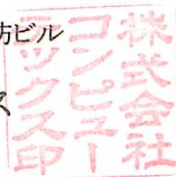 ビル
株式会社
コンピュー
テックス印